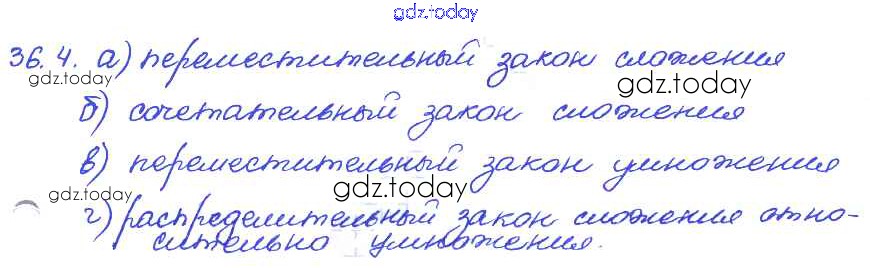 gdz.today
36.4. а) переместительный закон сложения
gdz.today
gdz.today
б) сочетательный закон сложения
в) переместительный закон умножения
gdz.today
gdz.today
г) распределительный закон сложения отно-
сительно умножения.